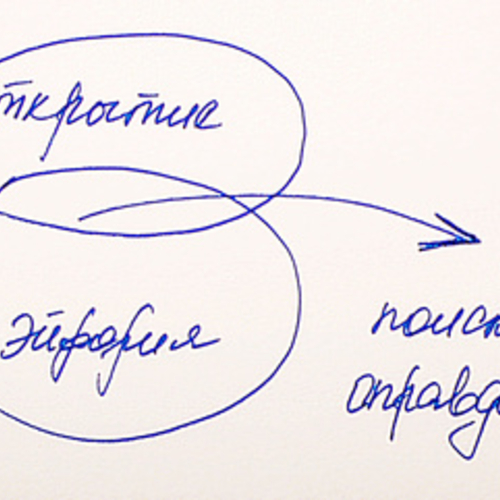 ткрытие
эйфория
поиск
оправда